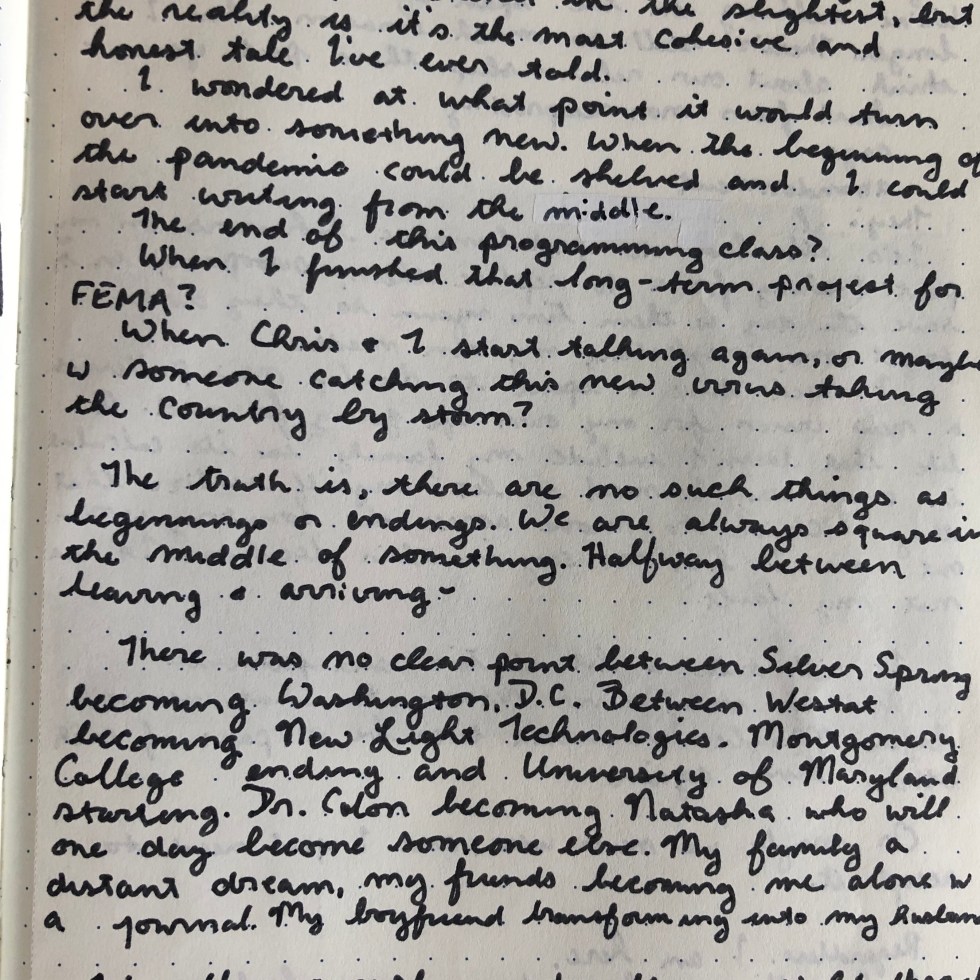 the reality is it's the most cohesive and
honest tale I've ever told.
I wondered at what point it would turn
over into something new. When the beginning of
the pandemic could be shelved and I could
start writing from the middle.
The end of this programming class?
When I finished that long-term project for
FEMA?
When Chris & I start talking again, or maybe
w someone catching this new virus taking
the country by storm?
The truth is, there are no such things as
beginnings or endings. We are always square in
the middle of something. Halfway between
leaving & arriving-
There was no clear point between Silver Spring
becoming Washington, D.C. Between Westat
becoming New Light Technologies. Montgomery
College ending and University of Maryland
starting. Dr. Colon becoming Natasha who will
one day become someone else. My family a
distant dream, my friends becoming me alone w
a journal. My boyfriend transforming into my husban